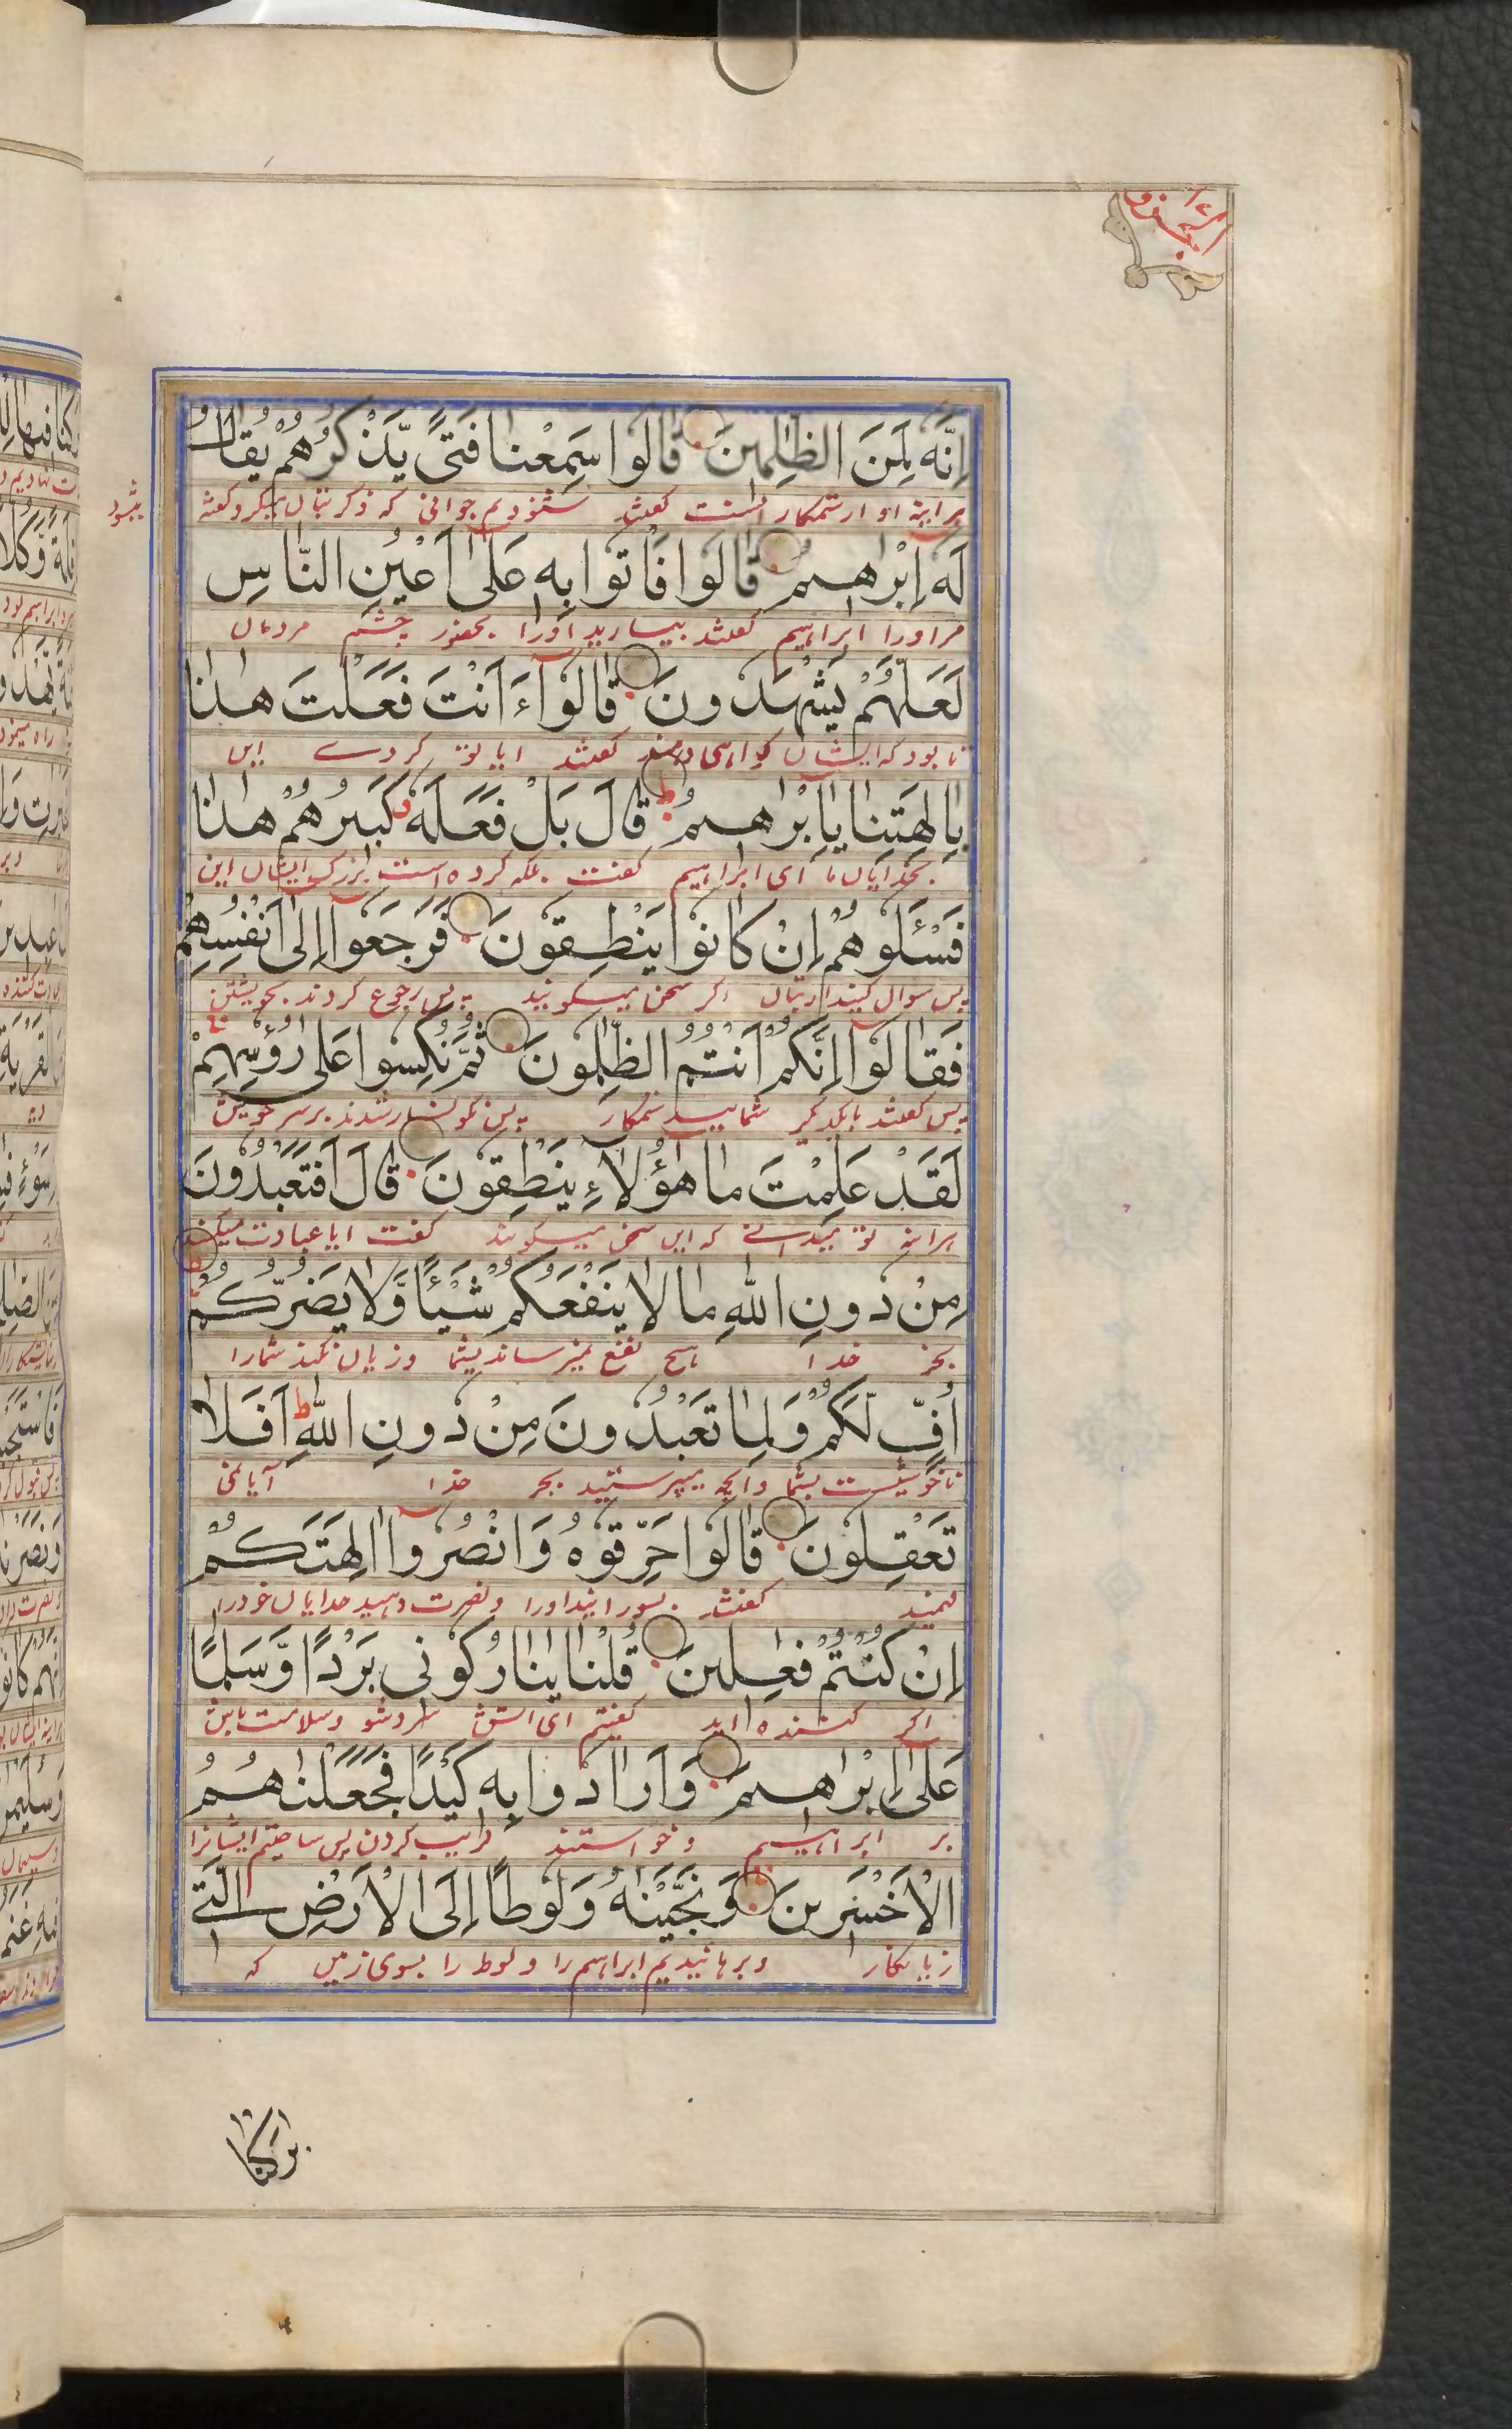 الجزو ١٧
اِنَّه لَمِنَ الظّٰلِمينَ قالوا سَمِعْنا فَتىً يَّذْكُرُهُمْ يُقالُ
هرآینه او از ستمکار انست گفتند شنودیم جوانی که ذکر بتان میکرد گفته
میشود
لَه اِبْراهيمُ قالوا فَاْتوا بِه عَلىٰ اَعْيُنِ النّاسِ
مر اورا ابراهیم گفتند بیارید اورا بحضور چشم مردمان
لَعَلَّهُمْ يَشْهَدونَ قالوا ءَاَنْتَ فَعَلْتَ هٰذا
تا بود که ایشان گواهی دهند گفتند ایا تو کردے این
بِاٰلِهَتِنا يا اِبْراهيمُ قالَ بَلْ فَعَلَه كَبيرُهُمْ هٰذا
بخدایان ما ای ابراهیم گفت بلکه کرده است بزرگ ایشان این
فَسْئَلوهُمْ اِنْ كانوا يَنْطِقونَ فَرَجَعوا اِلىٰ اَنْفُسِهِمْ
پس سوال کنید از بتان اگر سخن میگویند پس رجوع کردند بخویشتن
فَقالوا اِنَّكُمْ اَنْتُمُ الظّٰلِمونَ ثُمَّ نُكِسوا عَلىٰ رُؤُسِهِمْ
پس گفتند بایکدیگر شمایید ستمکار پس نگونسار شدند بر سر خویش
لَقَدْ عَلِمْتَ ما هٰؤُلاءِ يَنْطِقونَ قالَ اَفَتَعْبُدونَ
هراینه تو میدانے که این سخن میگویند گفت ایا عبادت میکنید
مِنْ دونِ اللّٰهِ ما لا يَنْفَعُكُمْ شَيْئًا وَّلا يَضُرُّكُمْ
بجز خدا هیچ نفع نمیرساند بشما و زیان نکند شمارا
اُفٍّ لَّكُمْ وَلِما تَعْبُدونَ مِنْ دونِ اللّٰهِ اَفَلا
ناخوشیست بشما و انچه میپرستید بجز خدا آیا نمی
تَعْقِلونَ قالوا حَرِّقوهُ وَانْصُروا اٰلِهَتَكُمْ
فهمید گفتند بسوزانید اورا و نصرت دهید خدایان خودرا
اِنْ كُنْتُمْ فٰعِلينَ قُلْنا يٰنارُ كوني بَرْدًا وَّسَلٰمًا
اگر کننده اید گفتیم ای اتش سرد شو و سلامت باش
عَلىٰ اِبْراهيمَ وَاَرادوا بِه كَيْدًا فَجَعَلْنٰهُمُ
بر ابراهیم و خواستند فریب کردن پس ساختیم ایشانرا
الْاَخْسَرينَ وَنَجَّيْنٰهُ وَلوطًا اِلَى الْاَرْضِ الَّتي
زیانکار و برهانیدیم ابراهیم را و لوط را بسوی زمین که
بٰرَكْنا